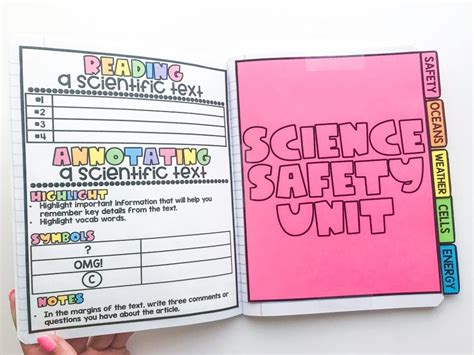 READING
a scientific text
#1
#2
#3
#4
ANNOTATING
a scientific text
HIGHLIGHT
• Highlight important information that will help you
remember key details from the text.
• Highlight vocab words.
SYMBOLS
?
OMG!
C
NOTES
• In the margins of the text, write three comments or
questions you have about the article.
SCIENCE
SAFETY
UNIT
SAFETY
OCEANS
WEATHER
CELLS
ENERGY